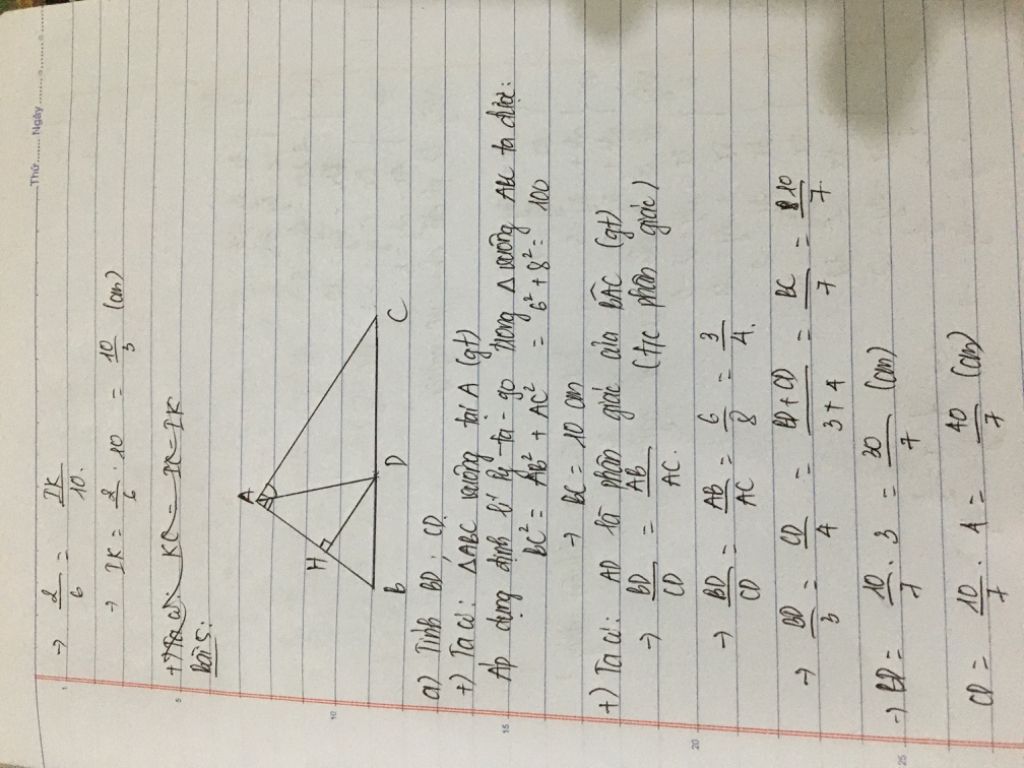 Thứ ........ Ngày ....................
→ 2/6 = IK/10.
→ IK = 2/6 . 10 = 10/3 (cm)
+) Ta có: KC = IC - IK
bài 5:
A
H
B D C
a) Tính BD; CD.
+) Ta có: △ABC vuông tại A (gt)
Áp dụng định lí Py-ta-go trong △ vuông ABC ta được:
BC² = AB² + AC² = 6² + 8² = 100
→ BC = 10 cm
+) Ta có: AD là phân giác của BÂC (gt)
→ BD/CD = AB/AC. (t/c phân giác)
→ BD/CD = AB/AC = 6/8 = 3/4.
→ BD/3 = CD/4 = BD+CD/3+4 = BC/7 = 10/7
→ BD = 10/7 . 3 = 30/7 (cm)
CD = 10/7 . 4 = 40/7 (cm)
5
10
15
20
25